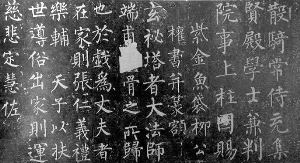 散騎常侍充集
賢殿學士兼判
院事上柱國賜
紫金魚袋柳公
權書并篆額
玄秘塔者大法師
端甫骨之所歸
也於戲為丈夫者
在家則張仁義禮
樂輔 天子以扶
世導俗出家則運
慈悲定慧佐